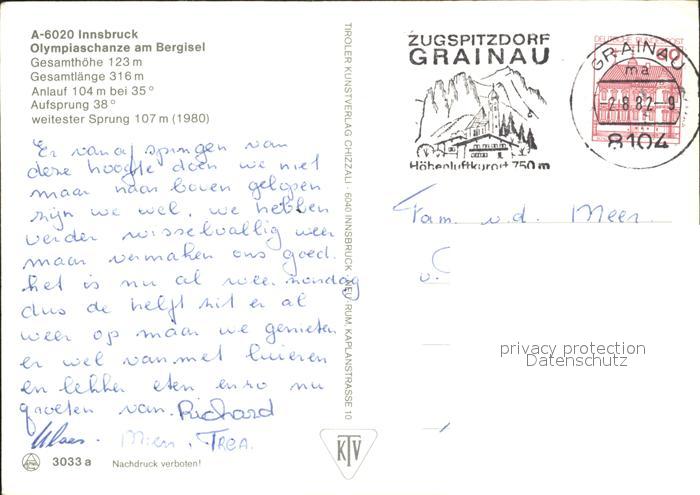 A-6020 Innsbruck
Olympiaschanze am Bergisel
Gesamthöhe 123 m
Gesamtlänge 316 m
Anlauf 104 m bei 35°
Aufsprung 38°
weitester Sprung 107 m (1980)
Er vanaf springen van
deze hoogte doen we niet
maar naar boven gelopen
zijn we wel, we hebben
verder wisselvallig weer
maar vermaken ons goed.
het is nu al weer zondag
dus de helft zit er al
weer op maar we genieten
er wel van met luieren
en lekker eten enzo nu
groeten van Richard
Klaas. Mien, Trea.
3033a Nachdruck verboten!
TIROLER KUNSTVERLAG CHIZZALI - 6040 INNSBRUCK / NEU-RUM, KAPLANSTRASSE 10
KTV
ZUGSPITZDORF
GRAINAU
Höhenluftkurort 750 m
DEUTSCHE BUNDESPOST
GRAINAU
ma
-2.8.82-9
8104
Fam v.d. Meer.
privacy protection
Datenschutz